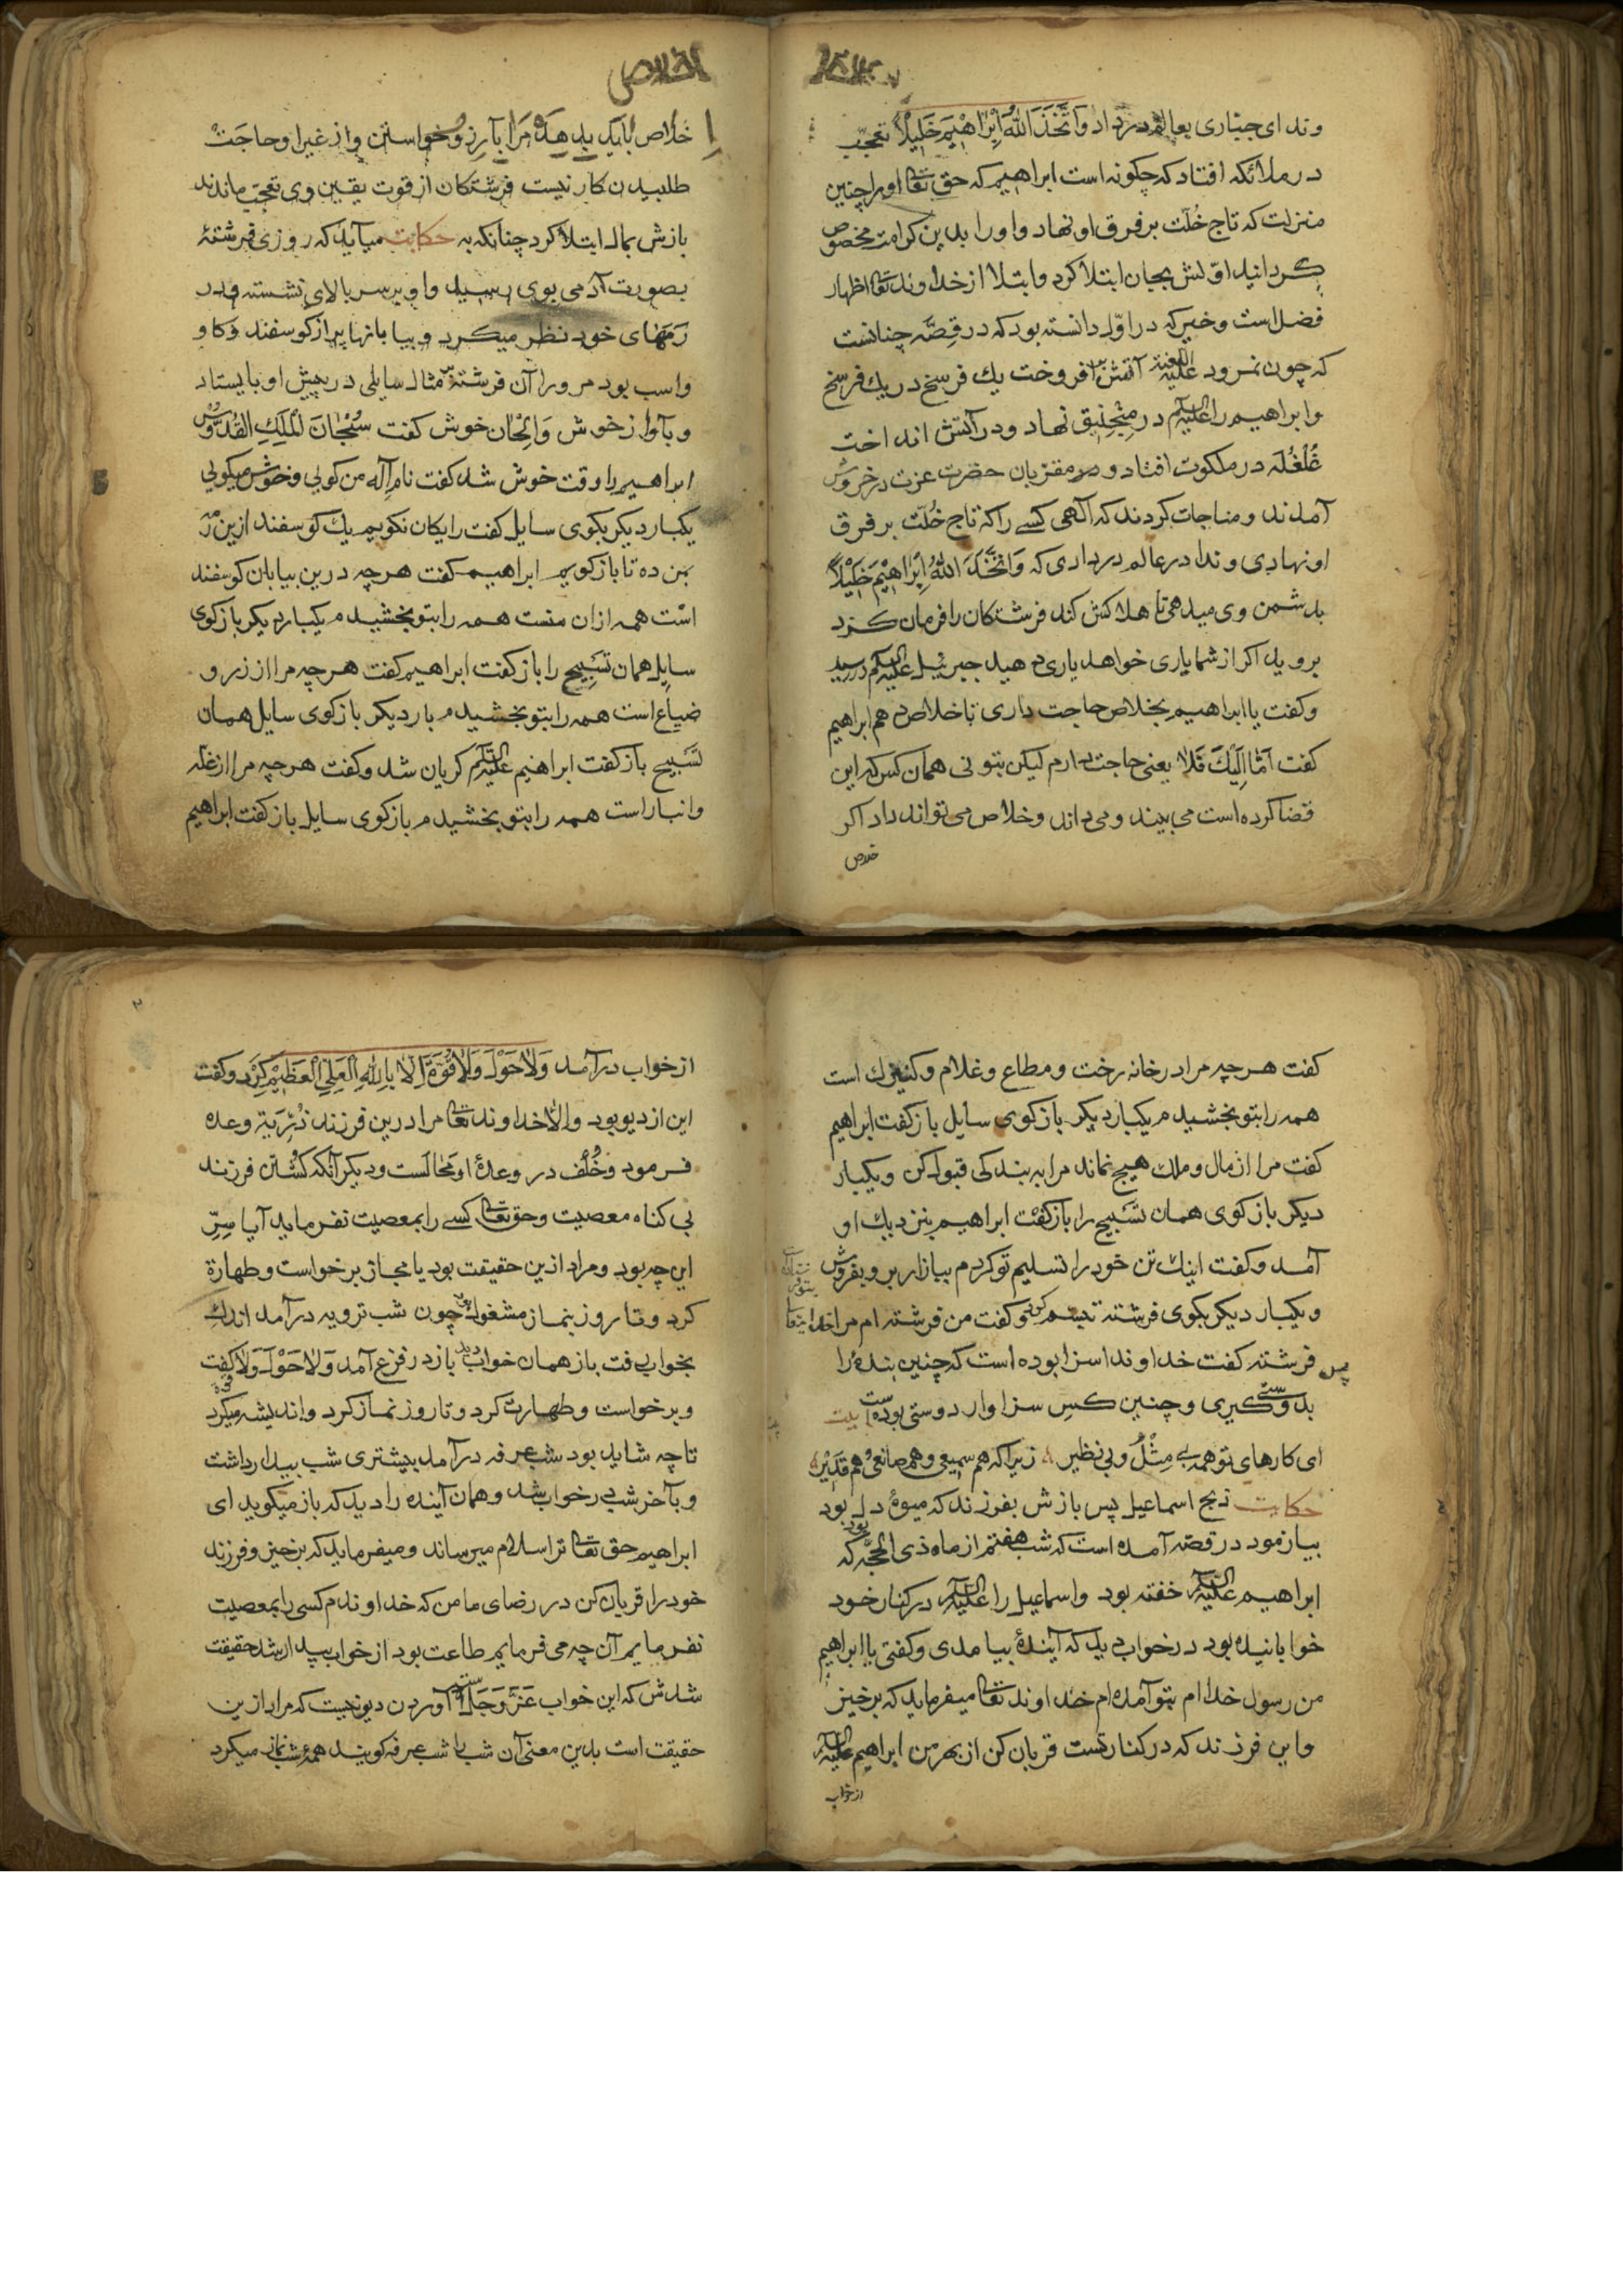 وندای جبّاری بعالم درداد وَاتَّخَذَ اللهُ اِبْرٰاهٖيْمَ خَلِيْلًا تعجّب
در ملائکه افتاد که چکونه است ابراهیم که حق تعا اورا چنین
منزلت که تاج خُلّت بر فرق او نهاد و اورا بدین کرامت مخصوص
کردانید اوّلش بجان ابتلا کرد و ابتلا از خداوند تعا اظهار
فضل است وخبر که در اوّل دانسته بود که در قِصّه چنانست
که چون نمرود علیه اللعنة آتش بر افروخت یك فرسخ در یك فرسخ
وابراهیم را علیه السلم در مِنْجنِیق نهاد ودر آتش انداخت
غُلْغُلَه در ملکوت افتاد و مقرّبان حضرت عزت در خروش
آمدند و مناجات کردند که آلهی کسے را که تاج خُلّت بر فرق
او نهادی وندا در عالم در داری که وَاتَّخَذَ اللهُ اِبْرٰاهِيْمَ خَلِيْلًا
بدشمن وی میدهی تا هلاکش کند فرشتکان را فرمان کرد
بروید اکر از شما یاری خواهد یاری دهید جبرئیل علیه السلم در رسید
وکفت یا ابراهیم بخلاص حاجت داری تا خلاص دهم ابراهیم
کفت اَمّا اِلَيْكَ فَلَا یعنی حاجت دارم لیکن بتو نی همان کس که این
قضا کرده است می بیند و می داند وخلاص می تواند داد اکر
خلاص
اخلاص
خلاص باید بدهد مرا بآرزو خواستن و از غیر او حاجَتْ
طلبیدن کار نیست فرشتکان از قوت یقین وی تعجّب ماندند
بازش بمال ابتلا کرد چنانکه به حکایت میآید که روزی فرشتهٔ
بصورت آدمی بوی رسید واو بر سر بالای نشسته ودر
رَمهٰای خود نظر میکرد و بیابانها پر از کوسفند وکاو
واسب بود مر ورا آن فرشته بر مثال سایلی در پیش او بایستاد
و بآواز خوش وَاَلْحٰان خوش کفت سُبْحٰانَ الْمَلِكِ الْقُدُّوْسُ
ابراهیم را وقت خوش شد کفت نام اِلٰه من کویی وخوش میکویی
یکبار دیکر بکوی سایل کفت رایکان نکویم یك کوسفند ازین رمه
بمن ده تا باز کویم ابراهیم کفت هرچه درین بیابان کوسفند
است همه ازان منست همه را بتو بخشیدم یکبار دیکر باز کوی
سایل همان تَسْبِیح را باز کفت ابراهیم کفت هرچه مرا از زر و
ضیاع است همه را بتو بخشیدم بار دیکر باز کوی سایل همان
تَسْبِیح باز کفت ابراهیم علیه السلم کریان شد وکفت هرچه مرا از غلّه
وانبار است همه را بتو بخشیدم باز کوی سایل باز کفت ابراهیم
کفت هرچه مرا در خانه رخت ومطاع وغلام وکنیزك است
همه را بتو بخشیدم یکبار دیکر باز کوی سایل باز کفت ابراهیم
کفت مرا از مال وملك هیچ نماند مرا به بندکی قبول کن ویکبار
دیکر باز کوی همان تَسْبِیح را باز کفت ابراهیم بنزدیك او
آمد وکفت اینك تن خود را تسلیم تو کردم ببازار بر وبفروش
ویکبار دیکر بکوی فرشته تبسّم کرد وکفت من فرشته ام مرا خدا
پس فرشته کفت خداوندا سزا بوده است که چنین بندهٔ را
بدوستی کیری وچنین کس سزاوار دوستی بوده است بیت
ای کارهای تو همه بے مِثْلُ و بی نظیر زیرا که هم سمیعی وهم صانعی وهم قدیر
حکایت ذبح اسماعیل پس بازش بفرزند که میوهٔ دل بود
بیازمود در قصّه آمده است که شب هفتم از ماه ذی الحجّه بود که
ابراهیم علیه السلم خفته بود واسماعیل را علیه السلم در کنار خود
خوابانیده بود در خواب دید که آیندهٔ بیامدی وکفتی یا ابراهیم
من رسول خدا ام بتو آمده ام خداوند تعا میفرماید که برخیز
واین فرزند که در کنار تست قربان کن از بهر من ابراهیم علیه السلم
از خواب
۲
از خواب درآمد وَلَاحَوْلَ وَلَا قُوَّةَ اِلَّا بِاللهِ الْعَلِيِّ الْعَظِيْمِ کرد وکفت
این از دیو بود والا خداوند تعا مرا درین فرزند ذُرِّیَة وعده
فرمود وخُلْف در وعدهٔ او محٰالست ودیکر آنکه کُشتن فرزند
بی کناه معصیت وحق تعا کسے را بمعصیت نفرماید آیا سِرِّ
این چه بود ومراد ازین حقیقت بود یا مجاز برخواست وطهارة
کرد وتا روز بنماز مشغول بود چون شب ترویه درآمد اندك
بخواب رفت باز همان خواب دید باز در فزع آمد وَلَاحَوْلَ وَلَا قوة کفت
وبرخواست وطهارت کرد وتا روز نماز کرد واندیشه میکرد
تا چه شاید بود شب عرفه درآمد بیشتری شب بیدار داشت
وبآخر شب در خواب شد وهمان آینده را دید که باز میکوید ای
ابراهیم حق تعا ترا سلام میرساند ومیفرماید که برخیز وفرزند
خود را قربان کن در رضای ما من که خداوندم کسی را بمعصیت
نفرمایم آن چه می فرمایم طاعت بود از خواب بیدار شد حقیقت
شدش که این خواب عَزَّ وَجَلَّ است آوردن دیو نیست که مراد ازین
حقیقت است بدین معنی آن شب را شب عرفه کویند همه شب نماز میکرد